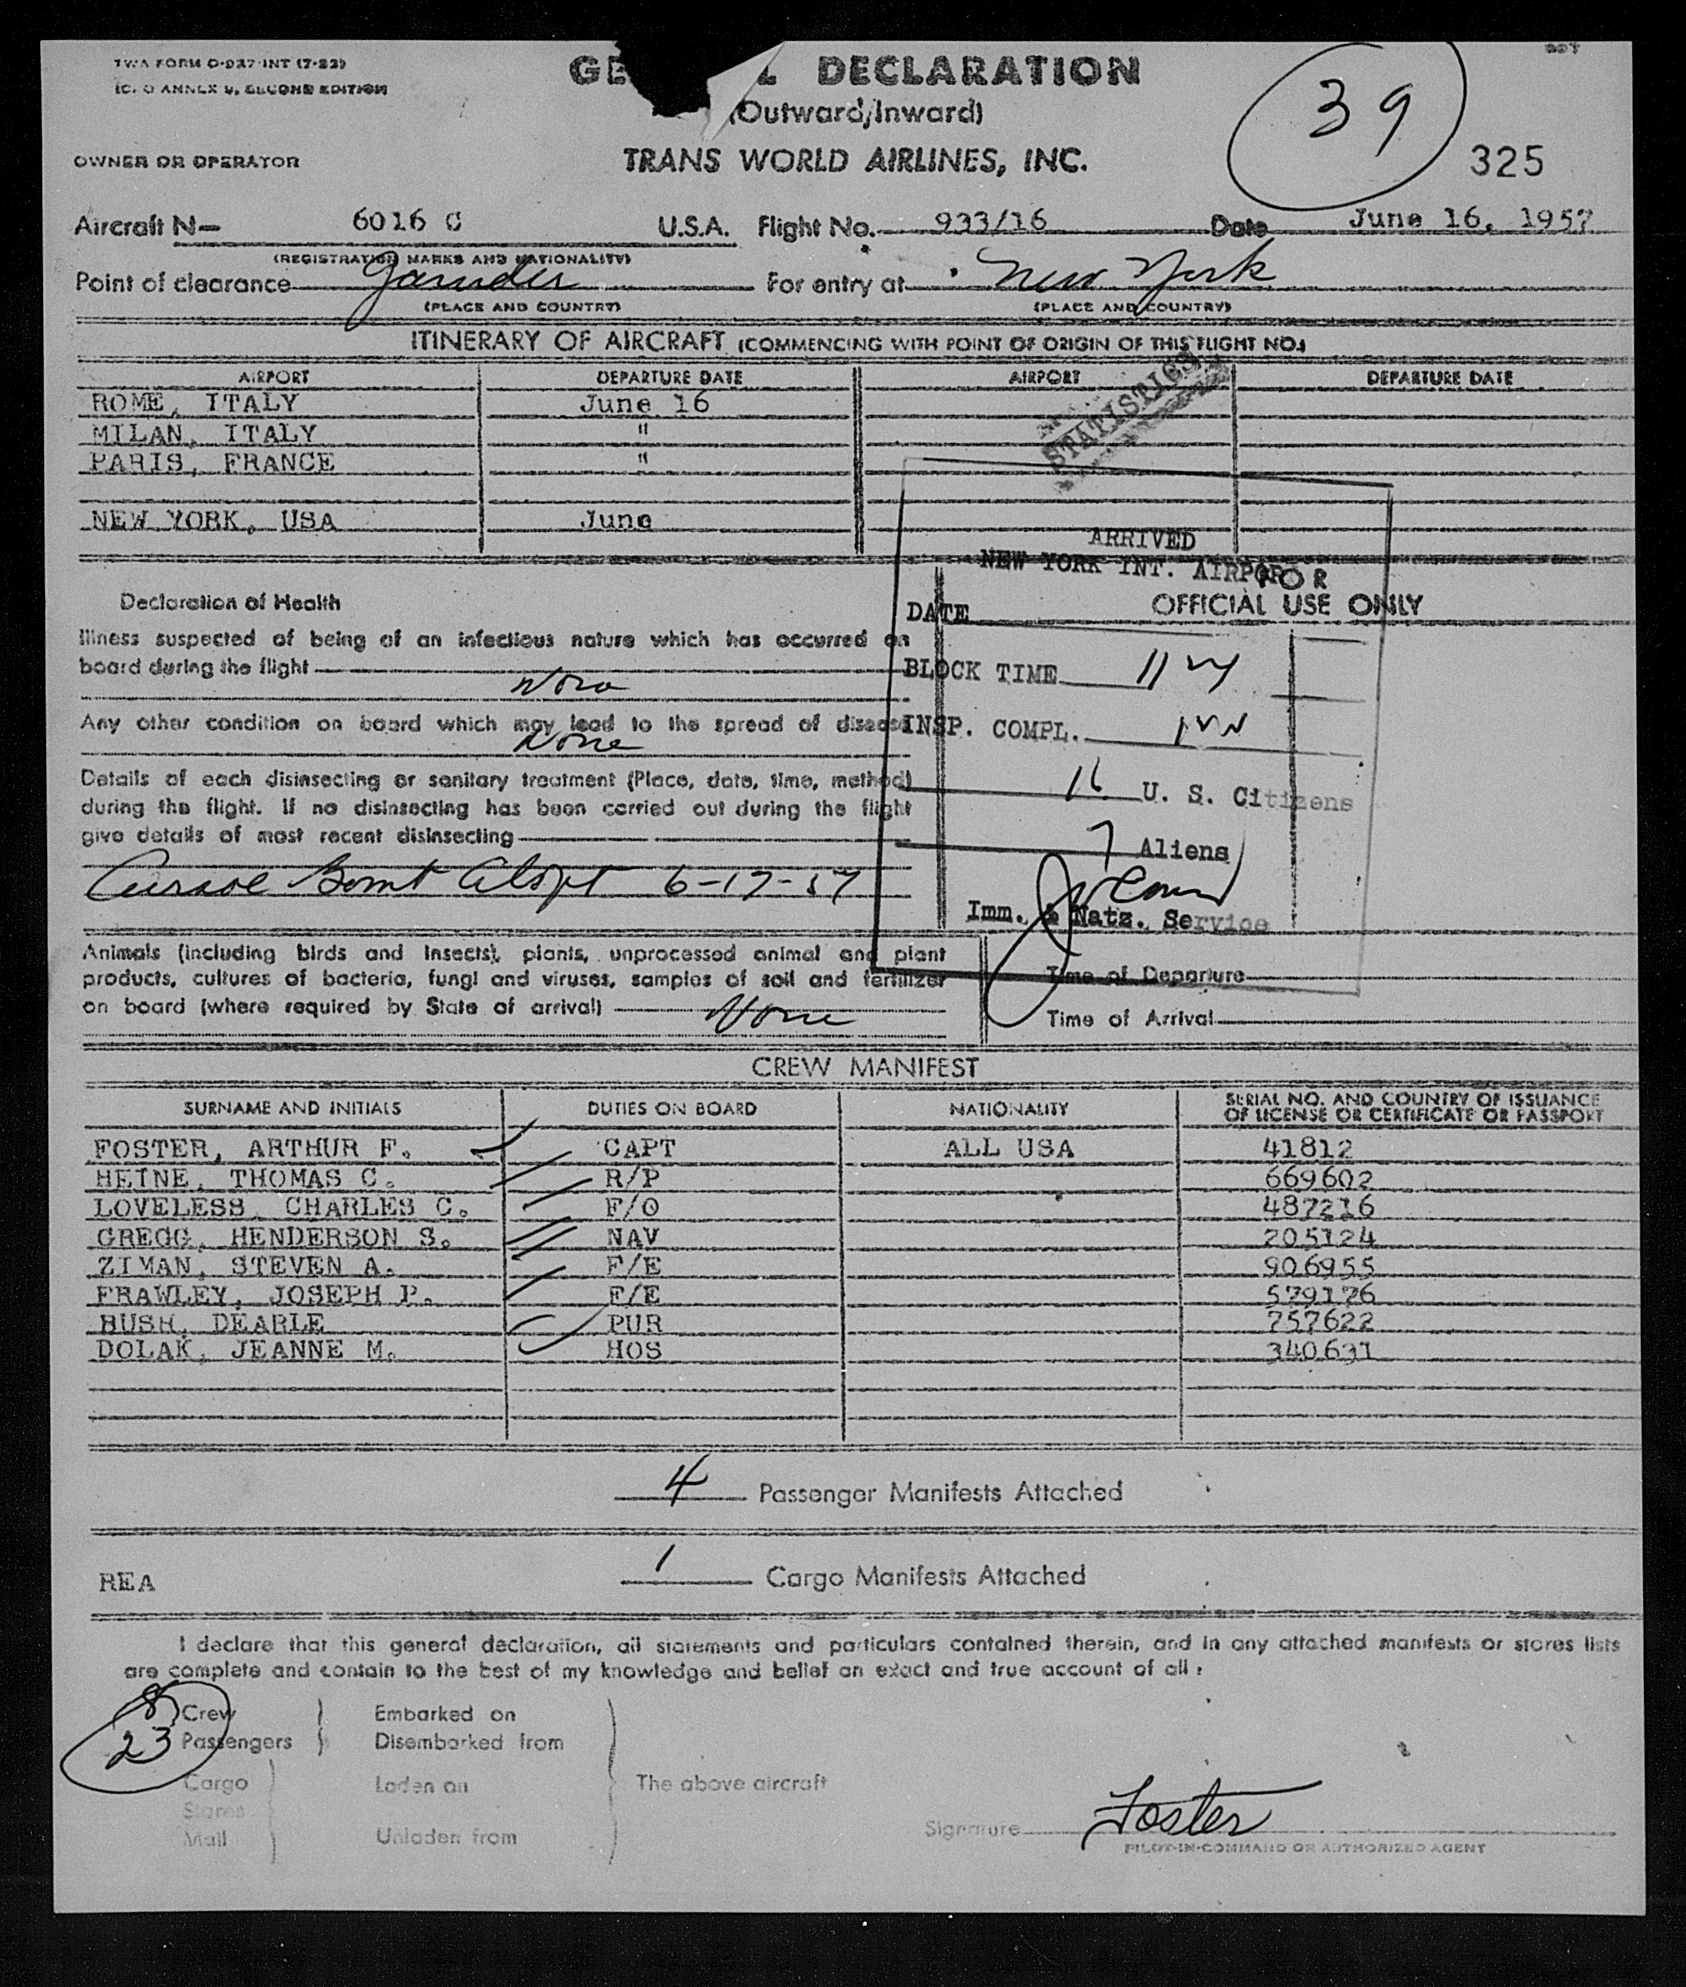 TWA FORM O-937-INT (7-53)
ICAO ANNEX 9, SECOND EDITION
DECLARATION
(Outward/Inward)
39
OWNER OR OPERATOR
TRANS WORLD AIRLINES, INC.
325
Aircraft N— 6016 C U.S.A. Flight No. 933/16 Date June 16, 1957
(REGISTRATION MARKS AND NATIONALITY)
Point of clearance For entry at New York
(PLACE AND COUNTRY) (PLACE AND COUNTRY)
ITINERARY OF AIRCRAFT (COMMENCING WITH POINT OF ORIGIN OF THIS FLIGHT NO.)
AIRPORT DEPARTURE DATE AIRPORT DEPARTURE DATE
STATISTICS
ROME, ITALY June 16
MILAN, ITALY "
PARIS, FRANCE "
NEW YORK, USA June
ARRIVED
NEW YORK INT. AIRPOR
FOR
OFFICIAL USE ONLY
DATE
BLOCK TIME
INSP. COMPL.
16 U. S. Citizens
7 Aliens
Imm. & Natz. Service
Declaration of Health
Illness suspected of being of an infectious nature which has occurred on
board during the flight
Any other condition on board which may lead to the spread of disease
None
Details of each disinsecting or sanitary treatment (Place, date, time, method)
during the flight. If no disinsecting has been carried out during the flight
give details of most recent disinsecting
6-17-57
Animals (including birds and insects), plants, unprocessed animal and plant
products, cultures of bacteria, fungi and viruses, samples of soil and fertilizer
on board (where required by State of arrival) None
Time of Departure
Time of Arrival
CREW MANIFEST
SURNAME AND INITIALS DUTIES ON BOARD NATIONALITY SERIAL NO. AND COUNTRY OF ISSUANCE
OF LICENSE OR CERTIFICATE OR PASSPORT
FOSTER, ARTHUR F. CAPT ALL USA 41812
HEINE, THOMAS C. R/P 669602
LOVELESS, CHARLES C. F/O 487216
GREGG, HENDERSON S. NAV 205124
ZIMAN, STEVEN A. F/E 906955
FRAWLEY, JOSEPH P. F/E 579176
BUSH, DEARLE PUR 757622
DOLAK, JEANNE M. HOS 340631
4 Passenger Manifests Attached
REA 1 Cargo Manifests Attached
I declare that this general declaration, all statements and particulars contained therein, and in any attached manifests or stores lists
are complete and contain to the best of my knowledge and belief an exact and true account of all:
8 Crew Embarked on
23 Passengers Disembarked from
Cargo Laden on The above aircraft
Stores
Mail Unladen from
Signature Foster
PILOT-IN-COMMAND OR AUTHORIZED AGENT